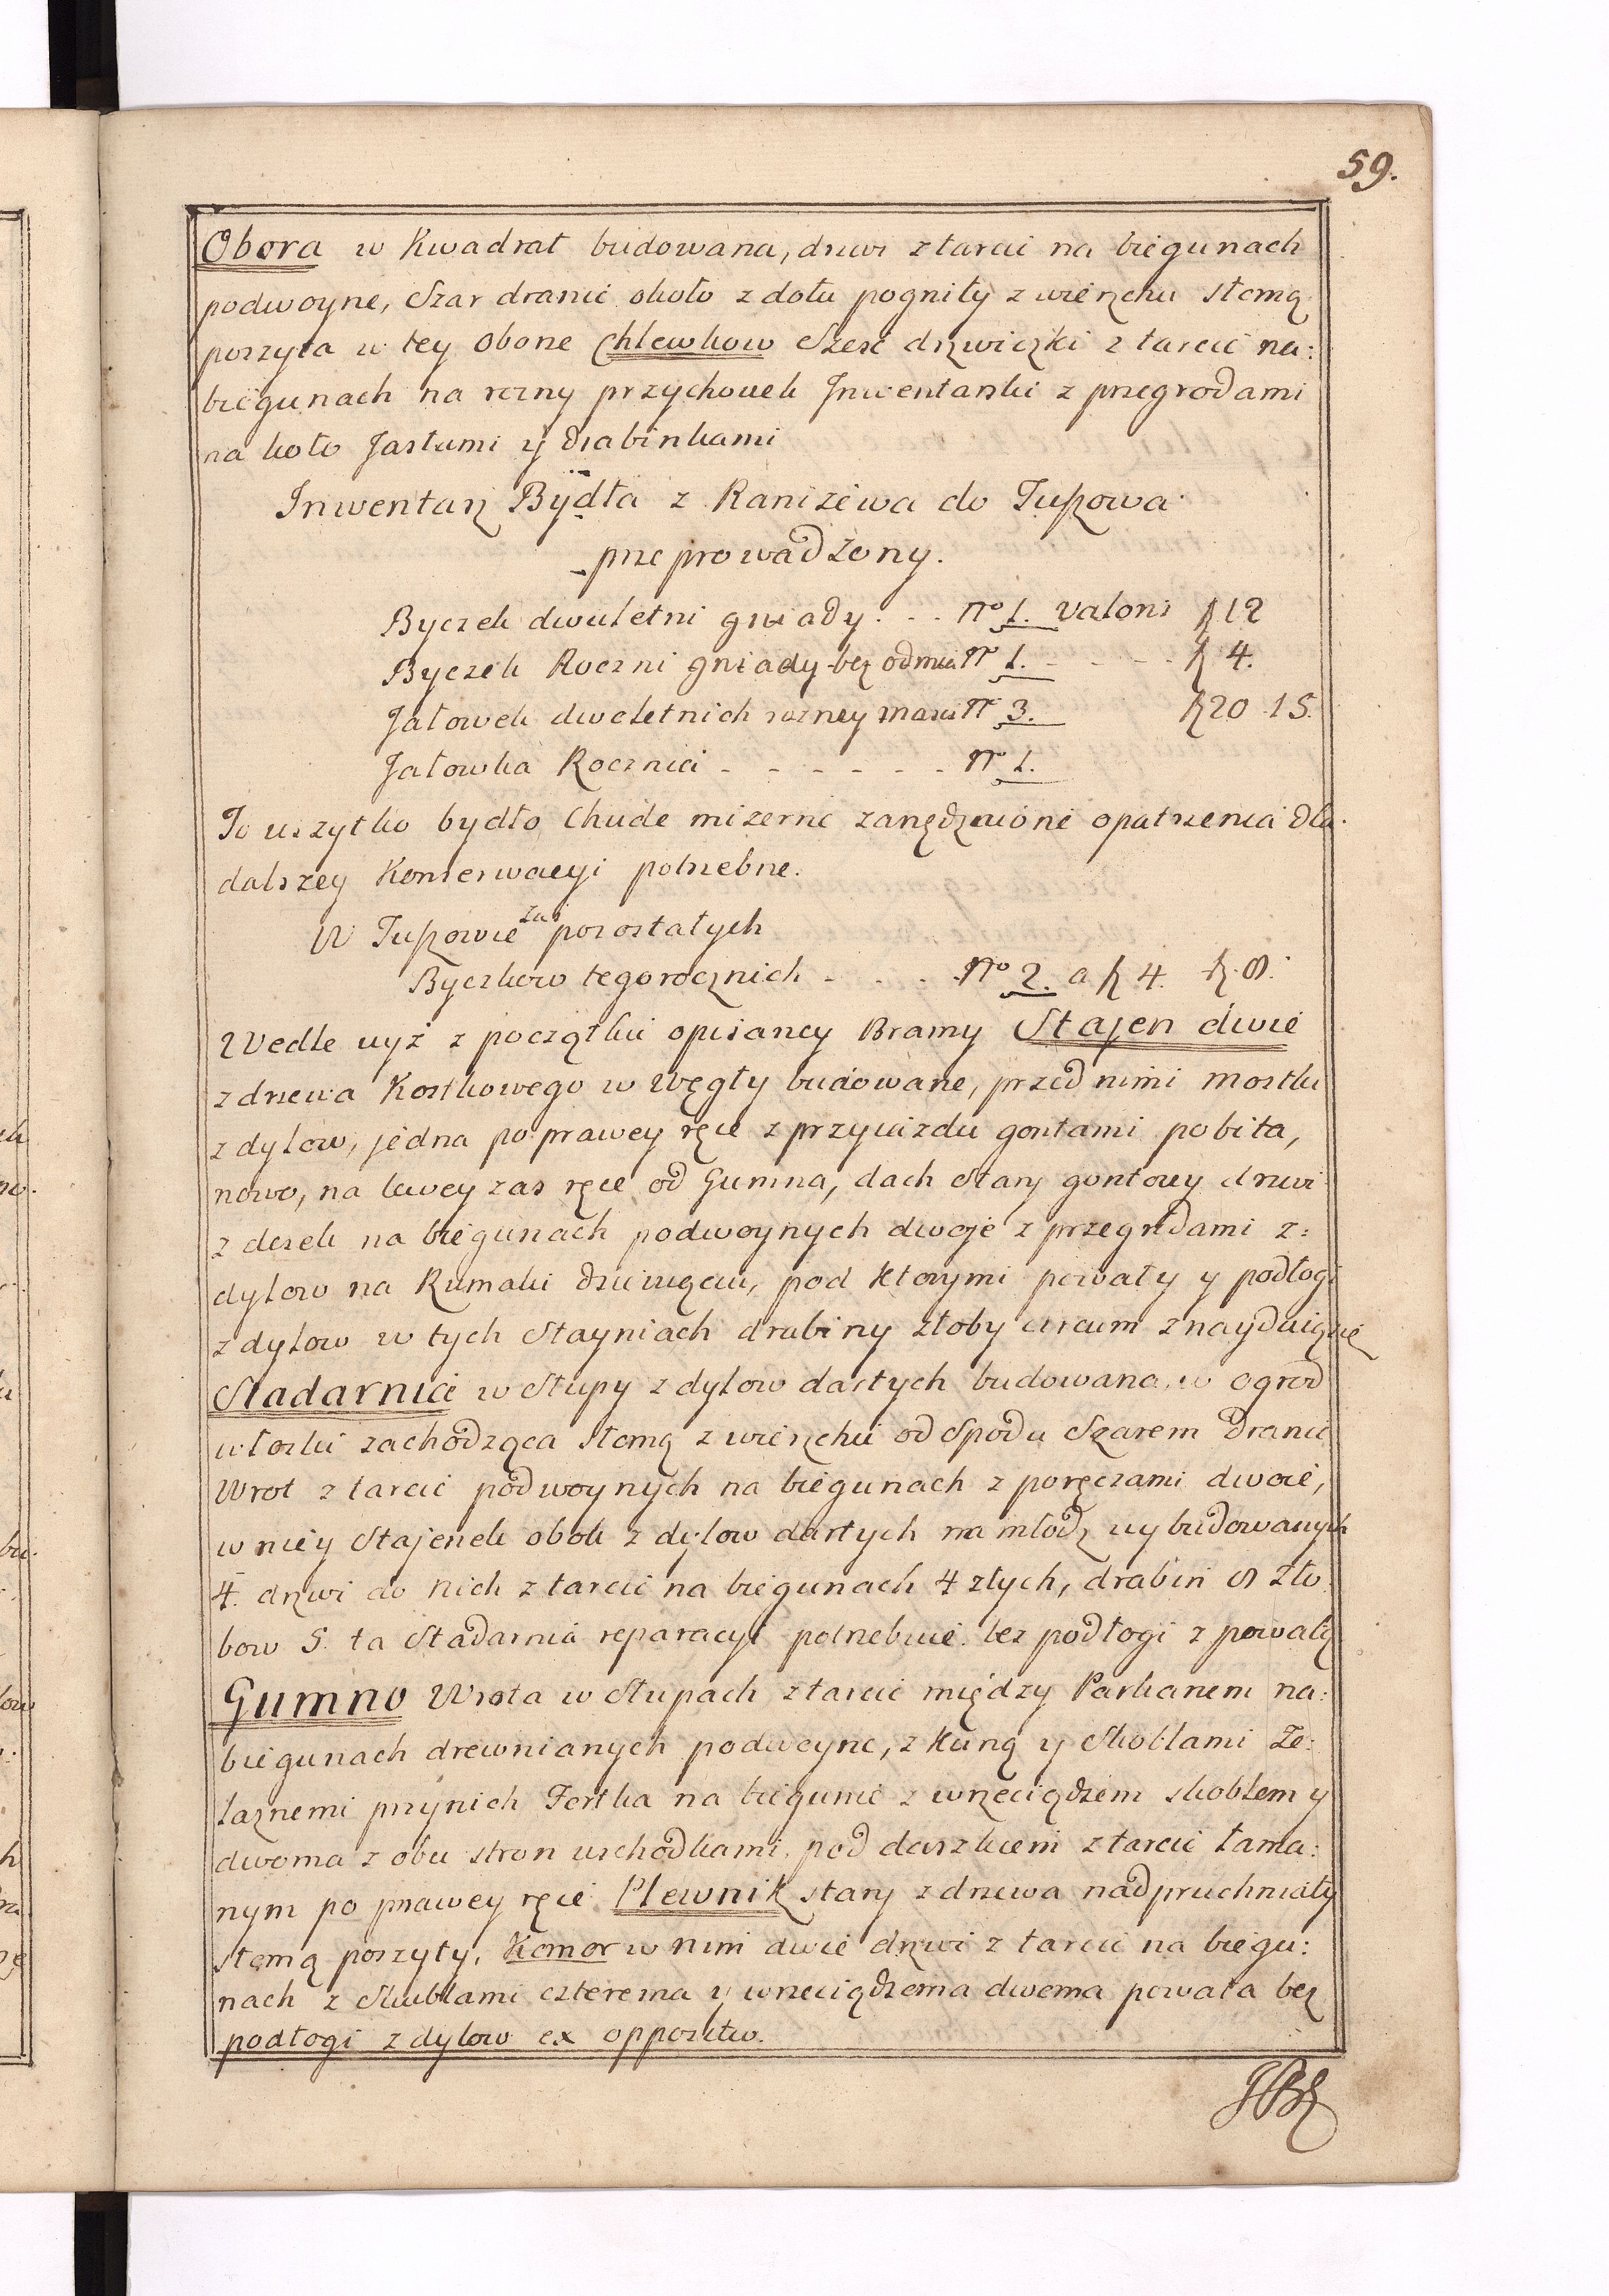 59.
Obora w Kwadrat budowana, drzwi z tarcic na biegunach
podwoyne, Szar dranic około z dołu pogniły z wierzchu słomą
poszyta w tey Oborze Chlewkow Sześć drzwiczki z tarcic na:
biegunach na rozny przychowek Inwentarski z przegrodami
na koło Jasłami y drabinkami
Inwentarz Bydła z Raniżewa do Tuszowa
przeprowadzony.
Byczek dwuletni gniady. . . No 1. valoris 12
Byczek Roczni gniady bez odmia No 1. - - - - 4.
Jałowek dwuletnich rozney masci No 3. 20 15.
Jałowka Roczna - - - - - - No 1.
To wszytko bydło Chude mizerne zanędznione opatrzenia dla
dalszey Konserwacyi potrzebne.
W Tuszowie zas pozostałych
Byczkow tegorocznich - . . . No 2. a 4. 8.
Wedle wyż z początku opisaney Bramy Stajen dwie
z drzewa Kostkowego w Węgły budowane, przed nimi mostki
z dylow, jedna po prawey ręce z przyiazdu gontami pobita,
nowo, na lewey zas ręce od Gumna, dach Stary gontowy drzwi
z desek na biegunach podwoynych dwoje z przegrodami z:
dylow na Rumaki pod ktorymi powały y podłogi
z dylow w tych Stayniach drabiny żłoby circum znayduią się
Stadarnia w Słupy z dylow dartych budowana, w ogrod
włoski zachodząca Słomą z wierzchu od Spodu Szarem Dranic
Wrot z tarcic podwoynych na biegunach z poręczami dwoie,
w niey Stajenek obok z dylow dartych na młodz wybudowanych
4. drzwi do nich z tarcic na biegunach 4 złych, drabin 8 żło
bow 5. ta Stadarnia reparacyi potrzebuie. bez podłogi z powałą
Gumno Wrota w Słupach z tarcic między Parkanem na:
biegunach drewnianych podwoyne, z Kuną y Skoblami Że:
laznemi przy nich Fortka na biegunie z wrzeciądzem skoblem y
dwoma z obu stron wschodkami, pod daszkiem z tarcic łama:
nym po prawey ręce Plewnik stary z drzewa nadpruchniały
słomą poszyty, Komor w nim dwie drzwi z tarcic na biegu:
nach z Skublami czterema y wrzeciądzoma dwoma powała bez
podłogi z dylow ex opposito.